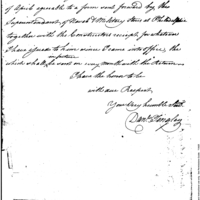 of April agreeable to a form word formed by the
Superintendant of Naval & Military Stores at Philadelphia
together with the Constructors receipt, for whatever
I have issued to have since I came into office, the
in future
which shall be sent on every month with the Return
I have the honor to be
with due Respect
Your Very humble Servt
Danl Tingley